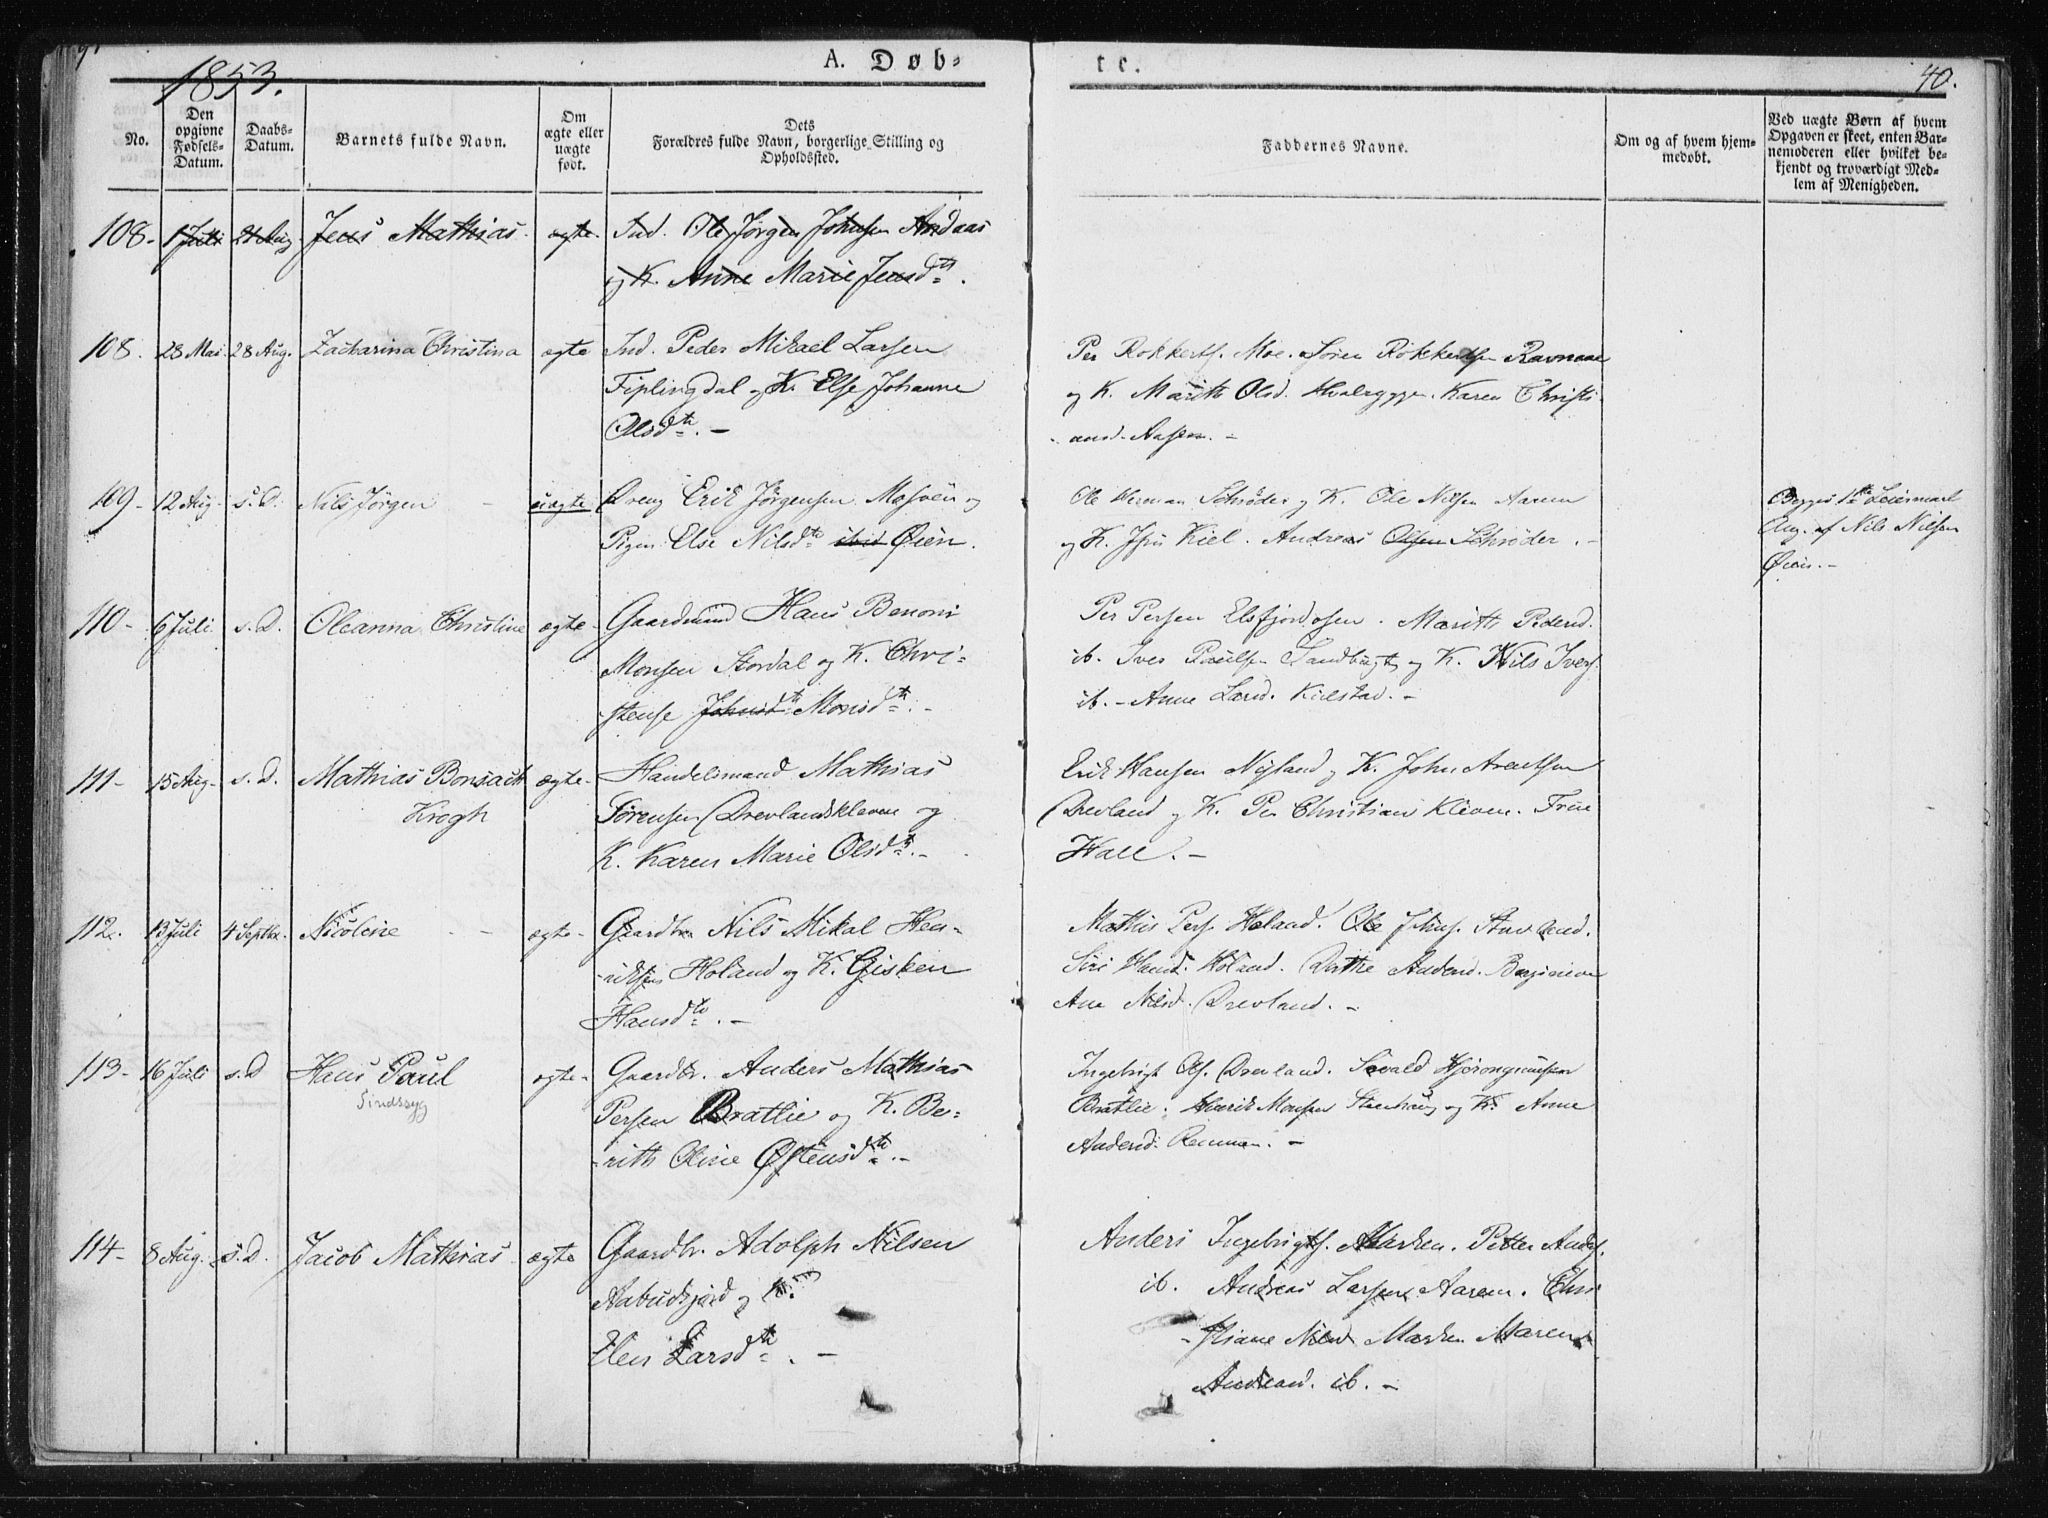 1853.
A. Døb-
te.
40.
No.
Den opgivne Fødsels-Datum.
Daabs-Datum.
Barnets fulde Navn.
Om ægte eller uægte født.
Dets Forældres fulde Navn, borgerlige Stilling og Opholdssted.
Faddernes Navne.
Om og af hvem hjemmedøbt.
Ved uægte Børn af hvem Opgaven er skeet, enten Barnemoderen eller hvilket bekjendt og troværdigt Medlem af Menigheden.
108- 1 Juli 21 Aug Jens Mathias. ægte Ind. Ole Jørgen Johnsen Andaas
og K. Anne Marie Jensdtr.
108. 28 Mai 28 Aug. Zacharina Christina ægte Ind. Peder Mikael Larsen
Fiplingdal og K. Else Johanne
Olsdtr. -
Per Rokkerts. Moe. Søren Rokkertsen Ravnaae
og K. Marith Olsd. Hvalrygge. Karen Christi-
ansd. Aasen. -
109- 12 Aug- s. D. Nils Jørgen - uægte Dreng Erik Jørgensen Mosvén og
Pigen Else Nilsdtr ibid Øien.
Ole Herman Schrøder og K. Ole Nilsen Aarem
og K. Kiel. Andreas Olsen Schrøder. -
Begges 1ste Leiermaal
Ang. af Nils Nilsen
Øien. -
110- 6 Juli s. D. Oleanna Christine ægte- Gaardmand Hans Benoni
Monsen Stordal og K. Chri-
stense Johnsdtr Monsdtr. -
Per Persen Elsfjordosen. Marith Pedersd.
ib. Iver Paulsen Sandbugt og K. Nils Ivers.
ib. - Anne Larsd. Kielstad. -
111- 15 Aug- s. D. Mathias Bonsach
Krogh
ægte- Handelsmand Mathias
Sørensen Drevlandskleven og
K. Karen Marie Olsdtr. -
Erik Hansen Nyland og K. John Arentsen
Drevland og K. Per Christian Kleven. Frue
Hall. -
112. 13 Juli 4 Septbr. Nicoline - - ægte- Gaardbr. Nils Mikal Hen-
riksen Holand og K. Gisken
Hansdtr. -
Mathis Pers. Holand. Ole Johns. Stavland.
Siri Hansd. Holand. Dorthe Andersd.
Ane Nilsd. Drevland. -
113- 16 Juli s. D Hans Paul
Sindssyg
ægte- Gaardbr. Anders Mathias
Persen Bratlie og K. Be-
rith Oline Østensdtr. -
Ingebrigt Ols. Drevland. Sivald Hjerongmusen
Bratlie. Henrik Monsen Stenhaug og K. Anne
Andersd. Remmen. -
114- 8 Aug. s. D. Jacob Mathias ægte Gaardbr. Adolph Nilsen
Aabudsjord og K.
Elen Larsdtr. -
Anders Ingebrigts. Marken. Petter Anders.
ib. Andreas Larsen Aarem. Chri
- stiane Nilsd Marken Maren
Andreasd. ib. -